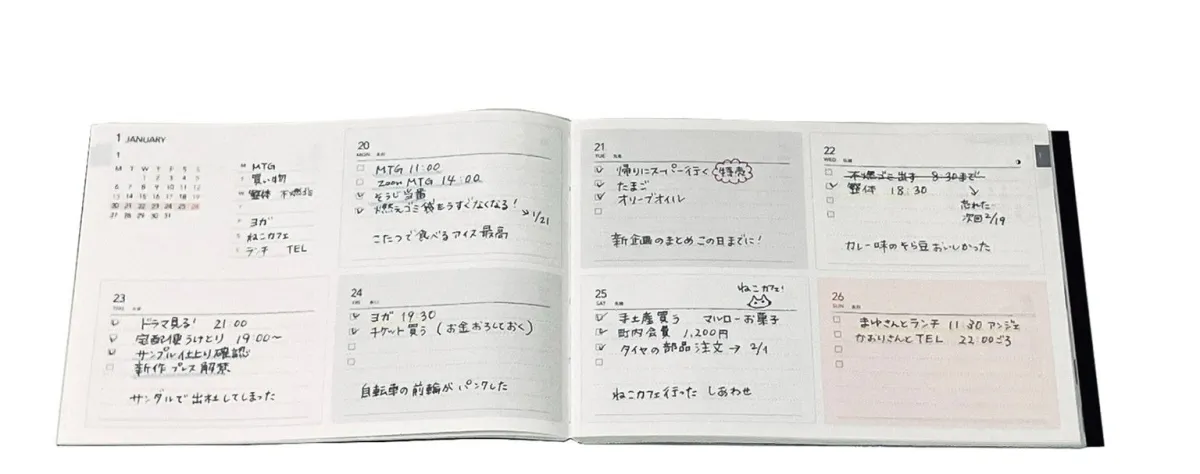 1 JANUARY
1
M T W T F S S
1 2 3 4 5
6 7 8 9 10 11 12
13 14 15 16 17 18 19
20 21 22 23 24 25 26
27 28 29 30 31
MTG
買い物
整体 不燃
ヨガ
ねこカフェ
ランチ TEL
20
MON
MTG 11:00
zoom MTG 14:00
そうじ当番
燃えゴミ袋もうすぐなくなる!
→ 1/21
こたつで食べるアイス最高
21
TUE
帰りにスーパー行く 特売
たまご
オリーブオイル
新企画のまとめこの日までに!
22
WED
不燃ゴミ出す 8:30まで
整体 18:30
忘れた
次回2/19
カレー味のそら豆おいしかった
23
THU
ドラマ見る! 21:00
宅配便うけとり 19:00~
サンプル仕上り確認
新作プレス解禁
サンダルで出社してしまった
24
FRI
ヨガ 19:30
チケット買う(お金おろしておく)
自転車の前輪がパンクした
25
SAT
ねこカフェ!
手土産買う マルローお菓子
町内会費 1,200円
タイヤの部品注文 → 2/1
ねこカフェ行った しあわせ
26
SUN
まゆさんとランチ 11:30 アンジェ
かおりさんとTEL 22:00ごろ